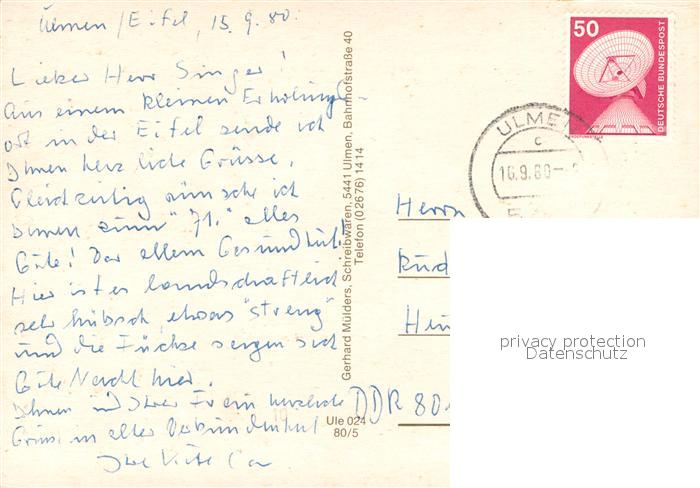 Ulmen/Eifel, 15.9.80.
Lieber Herr Singer!
Aus einem kleinen Erholungs-
ort in der Eifel sende ich
Ihnen herzliche Grüsse.
Gleichzeitig wünsche ich
Ihnen zum "71." alles
Gute! Vor allem Gesundheit!
Hier ist es landschaftlich
sehr hübsch, etwas "streng"
und die Füchse sagen sich
Gute Nacht hier.
Ihnen und Ihrer Frau herzliche
Grüsse in alter Verbundenheit
Ihre
Gerhard Mülders, Schreibwaren, 5441 Ulmen, Bahnhofstraße 40
Telefon (02676) 1414
Ule 024
80/5
50
DEUTSCHE BUNDESPOST
ULMEN
c
16.9.80
Herrn
DDR 80
privacy protection
Datenschutz